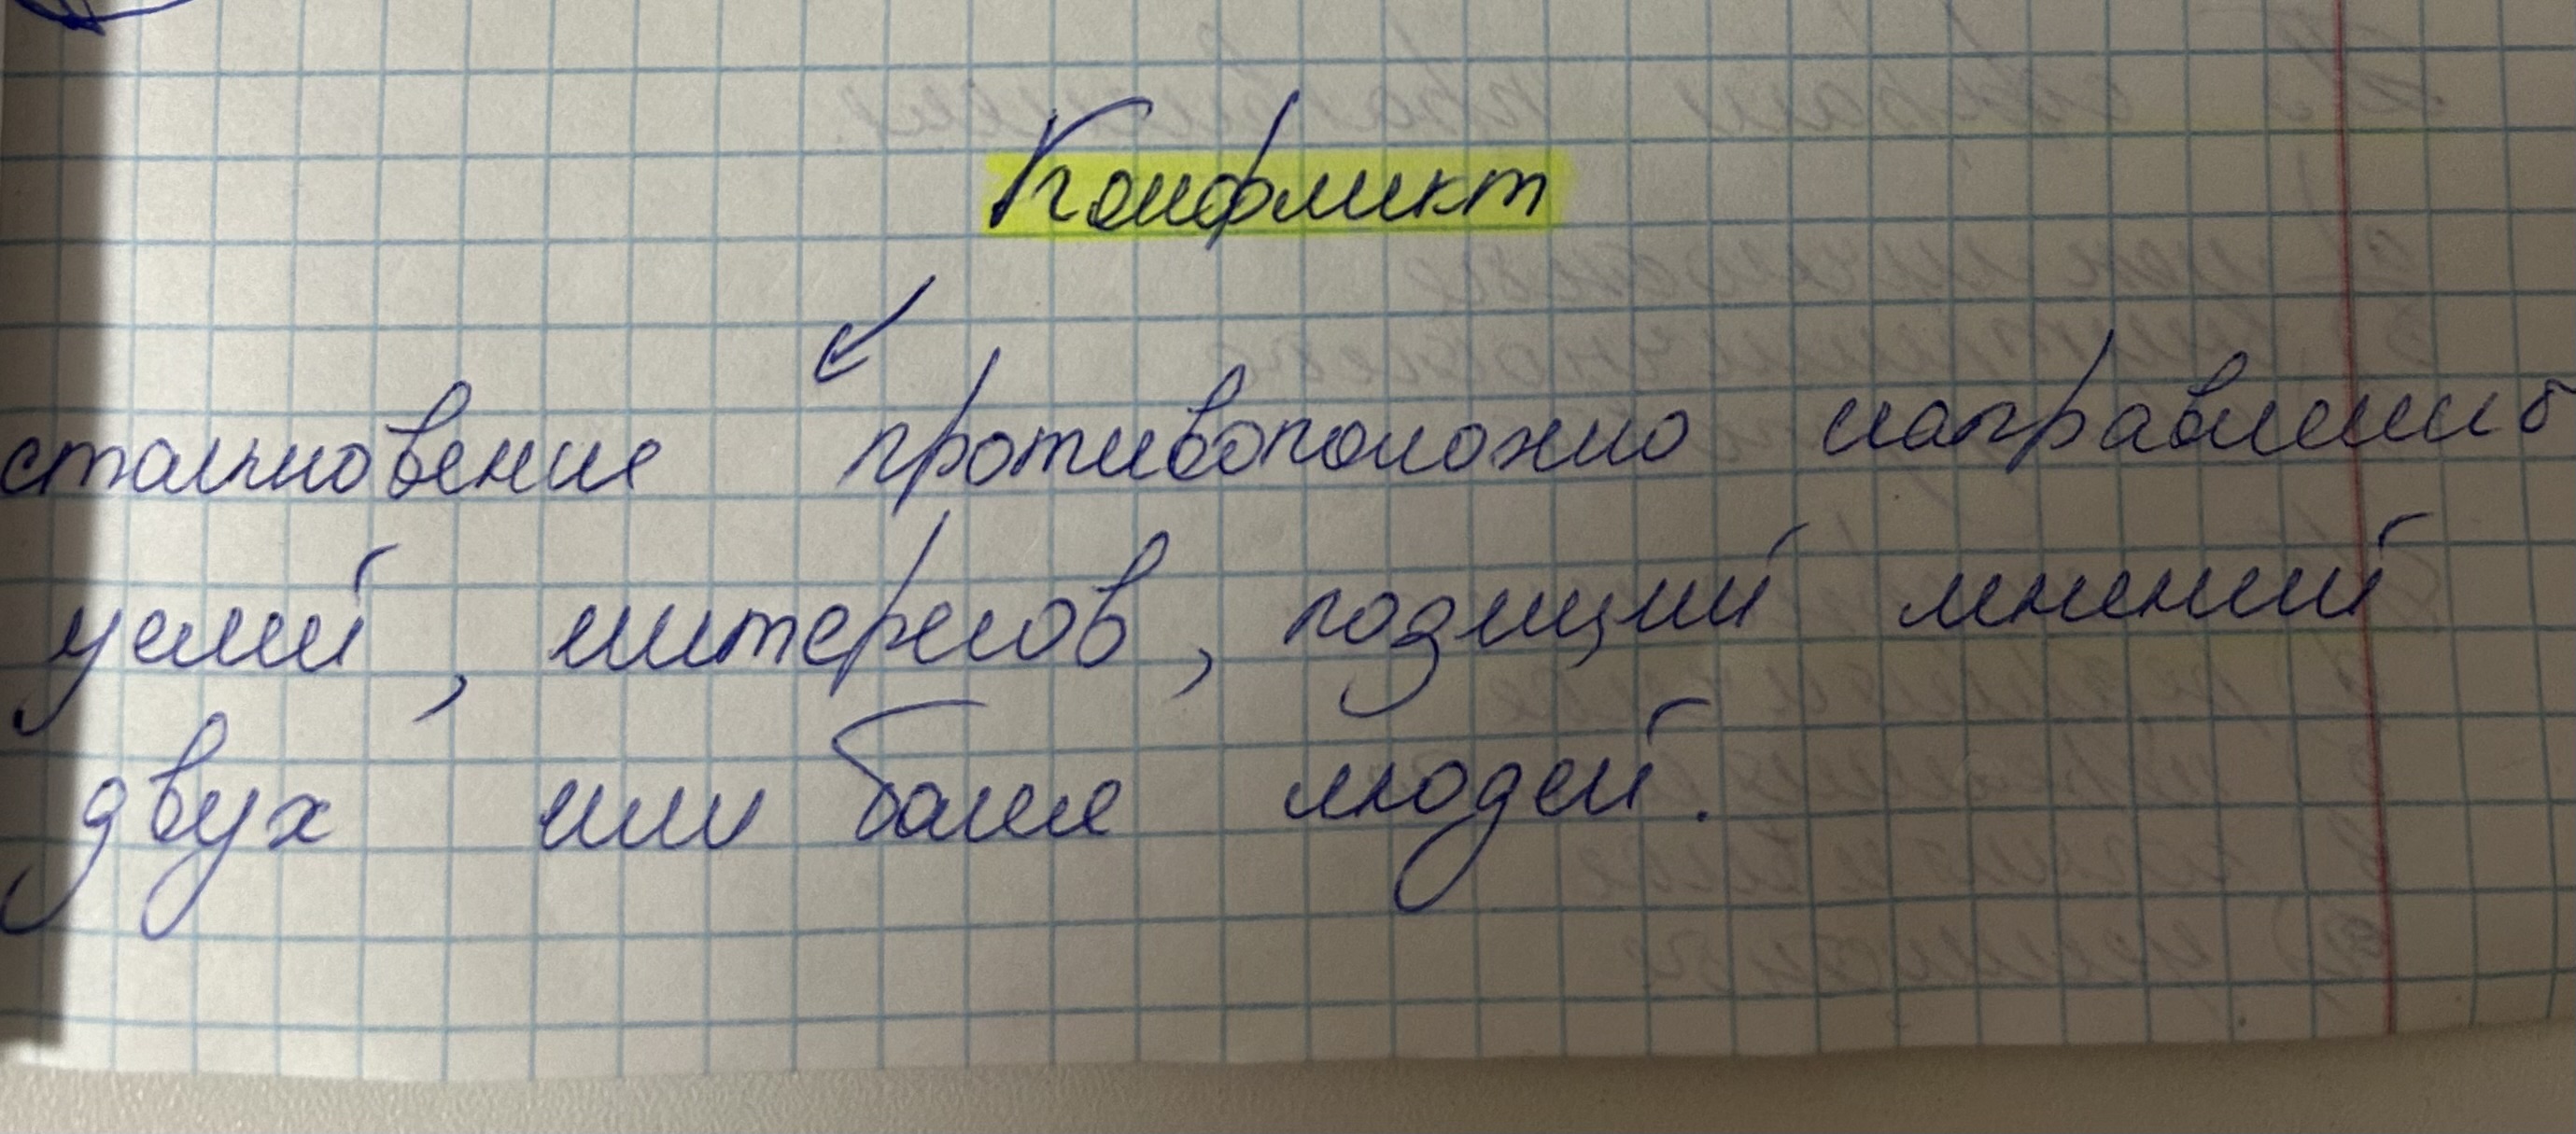 Конфликт
столкновение противоположно направлений
целей, интересов, позиций мнений
двух или более людей.